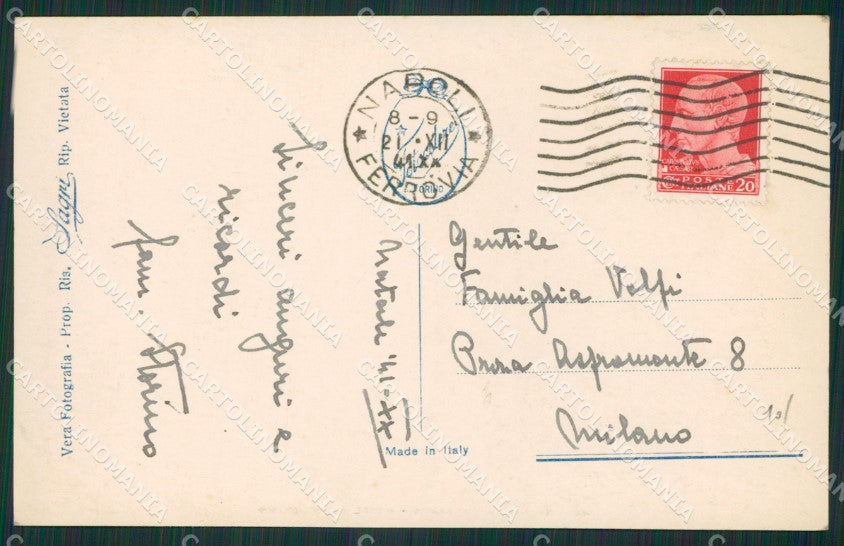 Vera Fotografia - Prop. Ris. Sagri Rip. Vietata
Sinceri auguri e
ricordi
fam. Storino
Natale '41-XX
NAPOLI
8-9
21 · XII
41 XX
FERROVIA
TORINO
POSTE
ITALIANE 20
Gentile
Famiglia Volpi
P.zza Aspromonte 8
Milano
Made in Italy
CARTOLINOMANIA